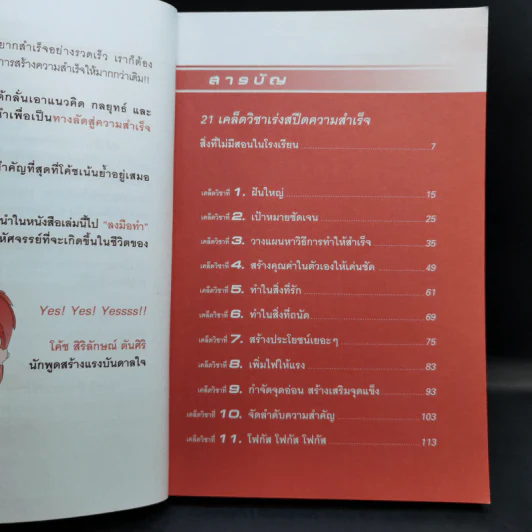 ยากสำเร็จอย่างรวดเร็ว เราก็ต้อง
การสร้างความสำเร็จให้มากกว่าเดิม!!
กลั่นเอาแนวคิด กลยุทธ์ และ
เพื่อเป็นทางลัดสู่ความสำเร็จ
สำคัญที่สุดที่โค้ชเน้นย้ำอยู่เสมอ
นำในหนังสือเล่มนี้ไป "ลงมือทำ"
หัศจรรย์ที่จะเกิดขึ้นในชีวิตของ
Yes! Yes! Yessss!!
โค้ช สิริลักษณ์ ตันศิริ
นักพูดสร้างแรงบันดาลใจ
สารบัญ
21 เคล็ดวิชาเร่งสปีดความสำเร็จ
สิ่งที่ไม่มีสอนในโรงเรียน 7
เคล็ดวิชาที่ 1. ฝันใหญ่ 15
เคล็ดวิชาที่ 2. เป้าหมายชัดเจน 25
เคล็ดวิชาที่ 3. วางแผนหาวิธีการทำให้สำเร็จ 35
เคล็ดวิชาที่ 4. สร้างคุณค่าในตัวเองให้เด่นชัด 49
เคล็ดวิชาที่ 5. ทำในสิ่งที่รัก 61
เคล็ดวิชาที่ 6. ทำในสิ่งที่ถนัด 69
เคล็ดวิชาที่ 7. สร้างประโยชน์เยอะๆ 75
เคล็ดวิชาที่ 8. เพิ่มไฟให้แรง 83
เคล็ดวิชาที่ 9. กำจัดจุดอ่อน สร้างเสริมจุดแข็ง 93
เคล็ดวิชาที่ 10. จัดลำดับความสำคัญ 103
เคล็ดวิชาที่ 11. โฟกัส โฟกัส โฟกัส 113